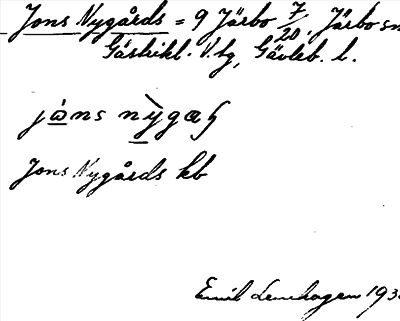 Jons Nygårds = 9 Järbo 7/20. Järbo sn
Gästrikl. V. tg, Gävleb. l.
jȯns nỳgaꞔ
Jons Nygårds kb
Emil Lenhagen 193